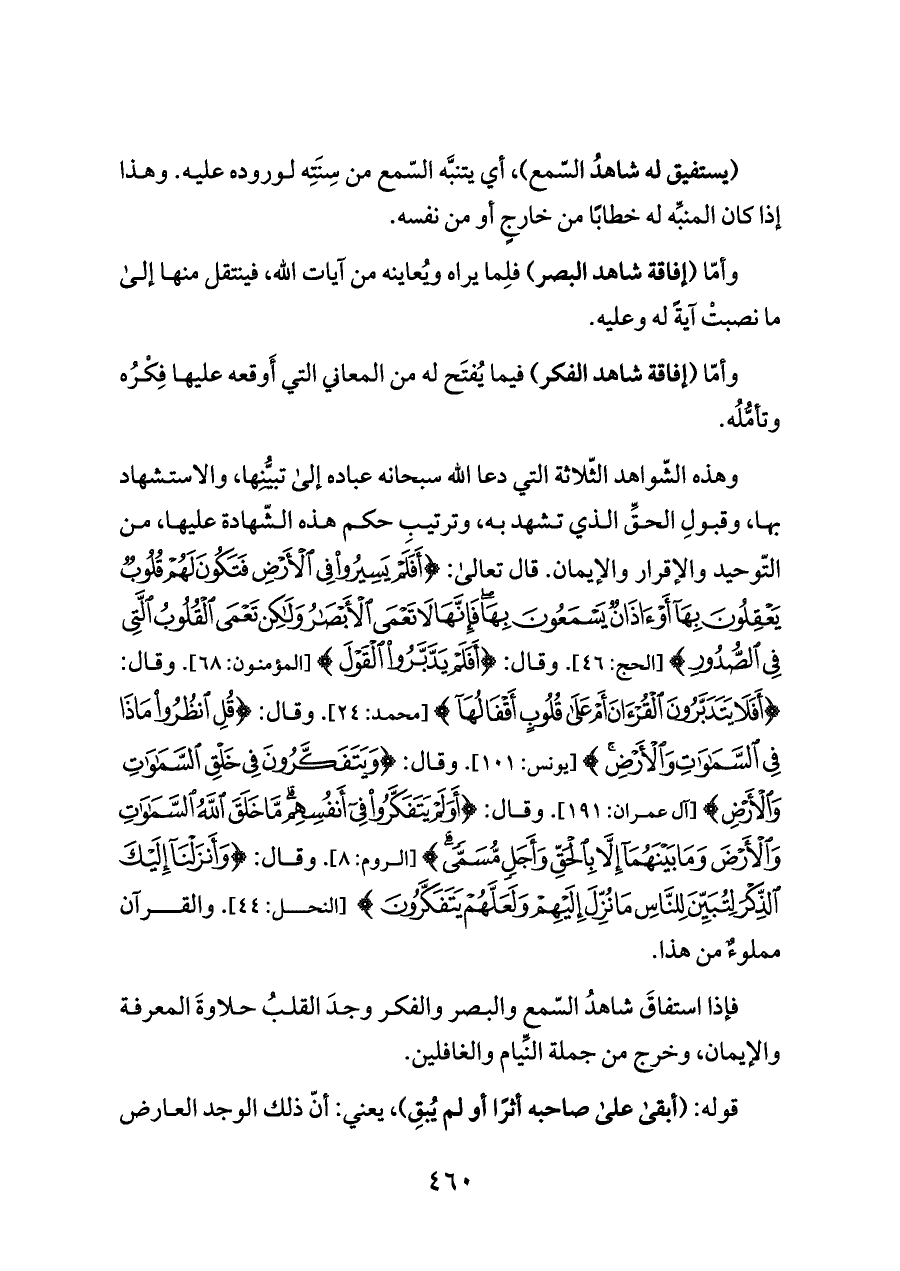 (يستفيق له شاهدُ السّمع)، أي يتنبَّه السّمع من سِنَتِه لوروده عليه. وهذا
إذا كان المنبِّه له خطابًا من خارجٍ أو من نفسه.
وأمّا (إفاقة شاهد البصر) فلِما يراه ويُعاينه من آيات الله، فينتقل منها إلىٰ
ما نصبتْ آيةً له وعليه.
وأمّا (إفاقة شاهد الفكر) فيما يُفتَح له من المعاني التي أَوقعه عليها فِكْرُه
وتأمُّلُه.
وهذه الشّواهد الثّلاثة التي دعا الله سبحانه عباده إلىٰ تبيُّنِها، والاستشهاد
بها، وقبولِ الحقِّ الذي تشهد به، وترتيبِ حكم هذه الشّهادة عليها، من
التّوحيد والإقرار والإيمان. قال تعالىٰ: ﴿أَفَلَمْ يَسِيرُوا۟ فِى ٱلْأَرْضِ فَتَكُونَ لَهُمْ قُلُوبٌ
يَعْقِلُونَ بِهَآ أَوْ ءَاذَانٌ يَسْمَعُونَ بِهَا ۖ فَإِنَّهَا لَا تَعْمَى ٱلْأَبْصَٰرُ وَلَٰكِن تَعْمَى ٱلْقُلُوبُ ٱلَّتِى
فِى ٱلصُّدُورِ﴾ [الحج: ٤٦]. وقال: ﴿أَفَلَمْ يَدَّبَّرُوا۟ ٱلْقَوْلَ﴾ [المؤمنون: ٦٨]. وقال:
﴿أَفَلَا يَتَدَبَّرُونَ ٱلْقُرْءَانَ أَمْ عَلَىٰ قُلُوبٍ أَقْفَالُهَآ﴾ [محمد: ٢٤]. وقال: ﴿قُلِ ٱنظُرُوا۟ مَاذَا
فِى ٱلسَّمَٰوَٰتِ وَٱلْأَرْضِ ۚ﴾ [يونس: ١٠١]. وقال: ﴿وَيَتَفَكَّرُونَ فِى خَلْقِ ٱلسَّمَٰوَٰتِ
وَٱلْأَرْضِ﴾ [آل عمران: ١٩١]. وقال: ﴿أَوَلَمْ يَتَفَكَّرُوا۟ فِىٓ أَنفُسِهِم ۗ مَّا خَلَقَ ٱللَّهُ ٱلسَّمَٰوَٰتِ
وَٱلْأَرْضَ وَمَا بَيْنَهُمَآ إِلَّا بِٱلْحَقِّ وَأَجَلٍ مُّسَمًّى ۗ﴾ [الروم: ٨]. وقال: ﴿وَأَنزَلْنَآ إِلَيْكَ
ٱلذِّكْرَ لِتُبَيِّنَ لِلنَّاسِ مَا نُزِّلَ إِلَيْهِمْ وَلَعَلَّهُمْ يَتَفَكَّرُونَ﴾ [النحل: ٤٤]. والقرآن
مملوءٌ من هذا.
فإذا استفاقَ شاهدُ السّمع والبصر والفكر وجدَ القلبُ حلاوةَ المعرفة
والإيمان، وخرج من جملة النِّيام والغافلين.
قوله: (أبقىٰ علىٰ صاحبه أثرًا أو لم يُبقِ)، يعني: أنّ ذلك الوجد العارض
٤٦٠